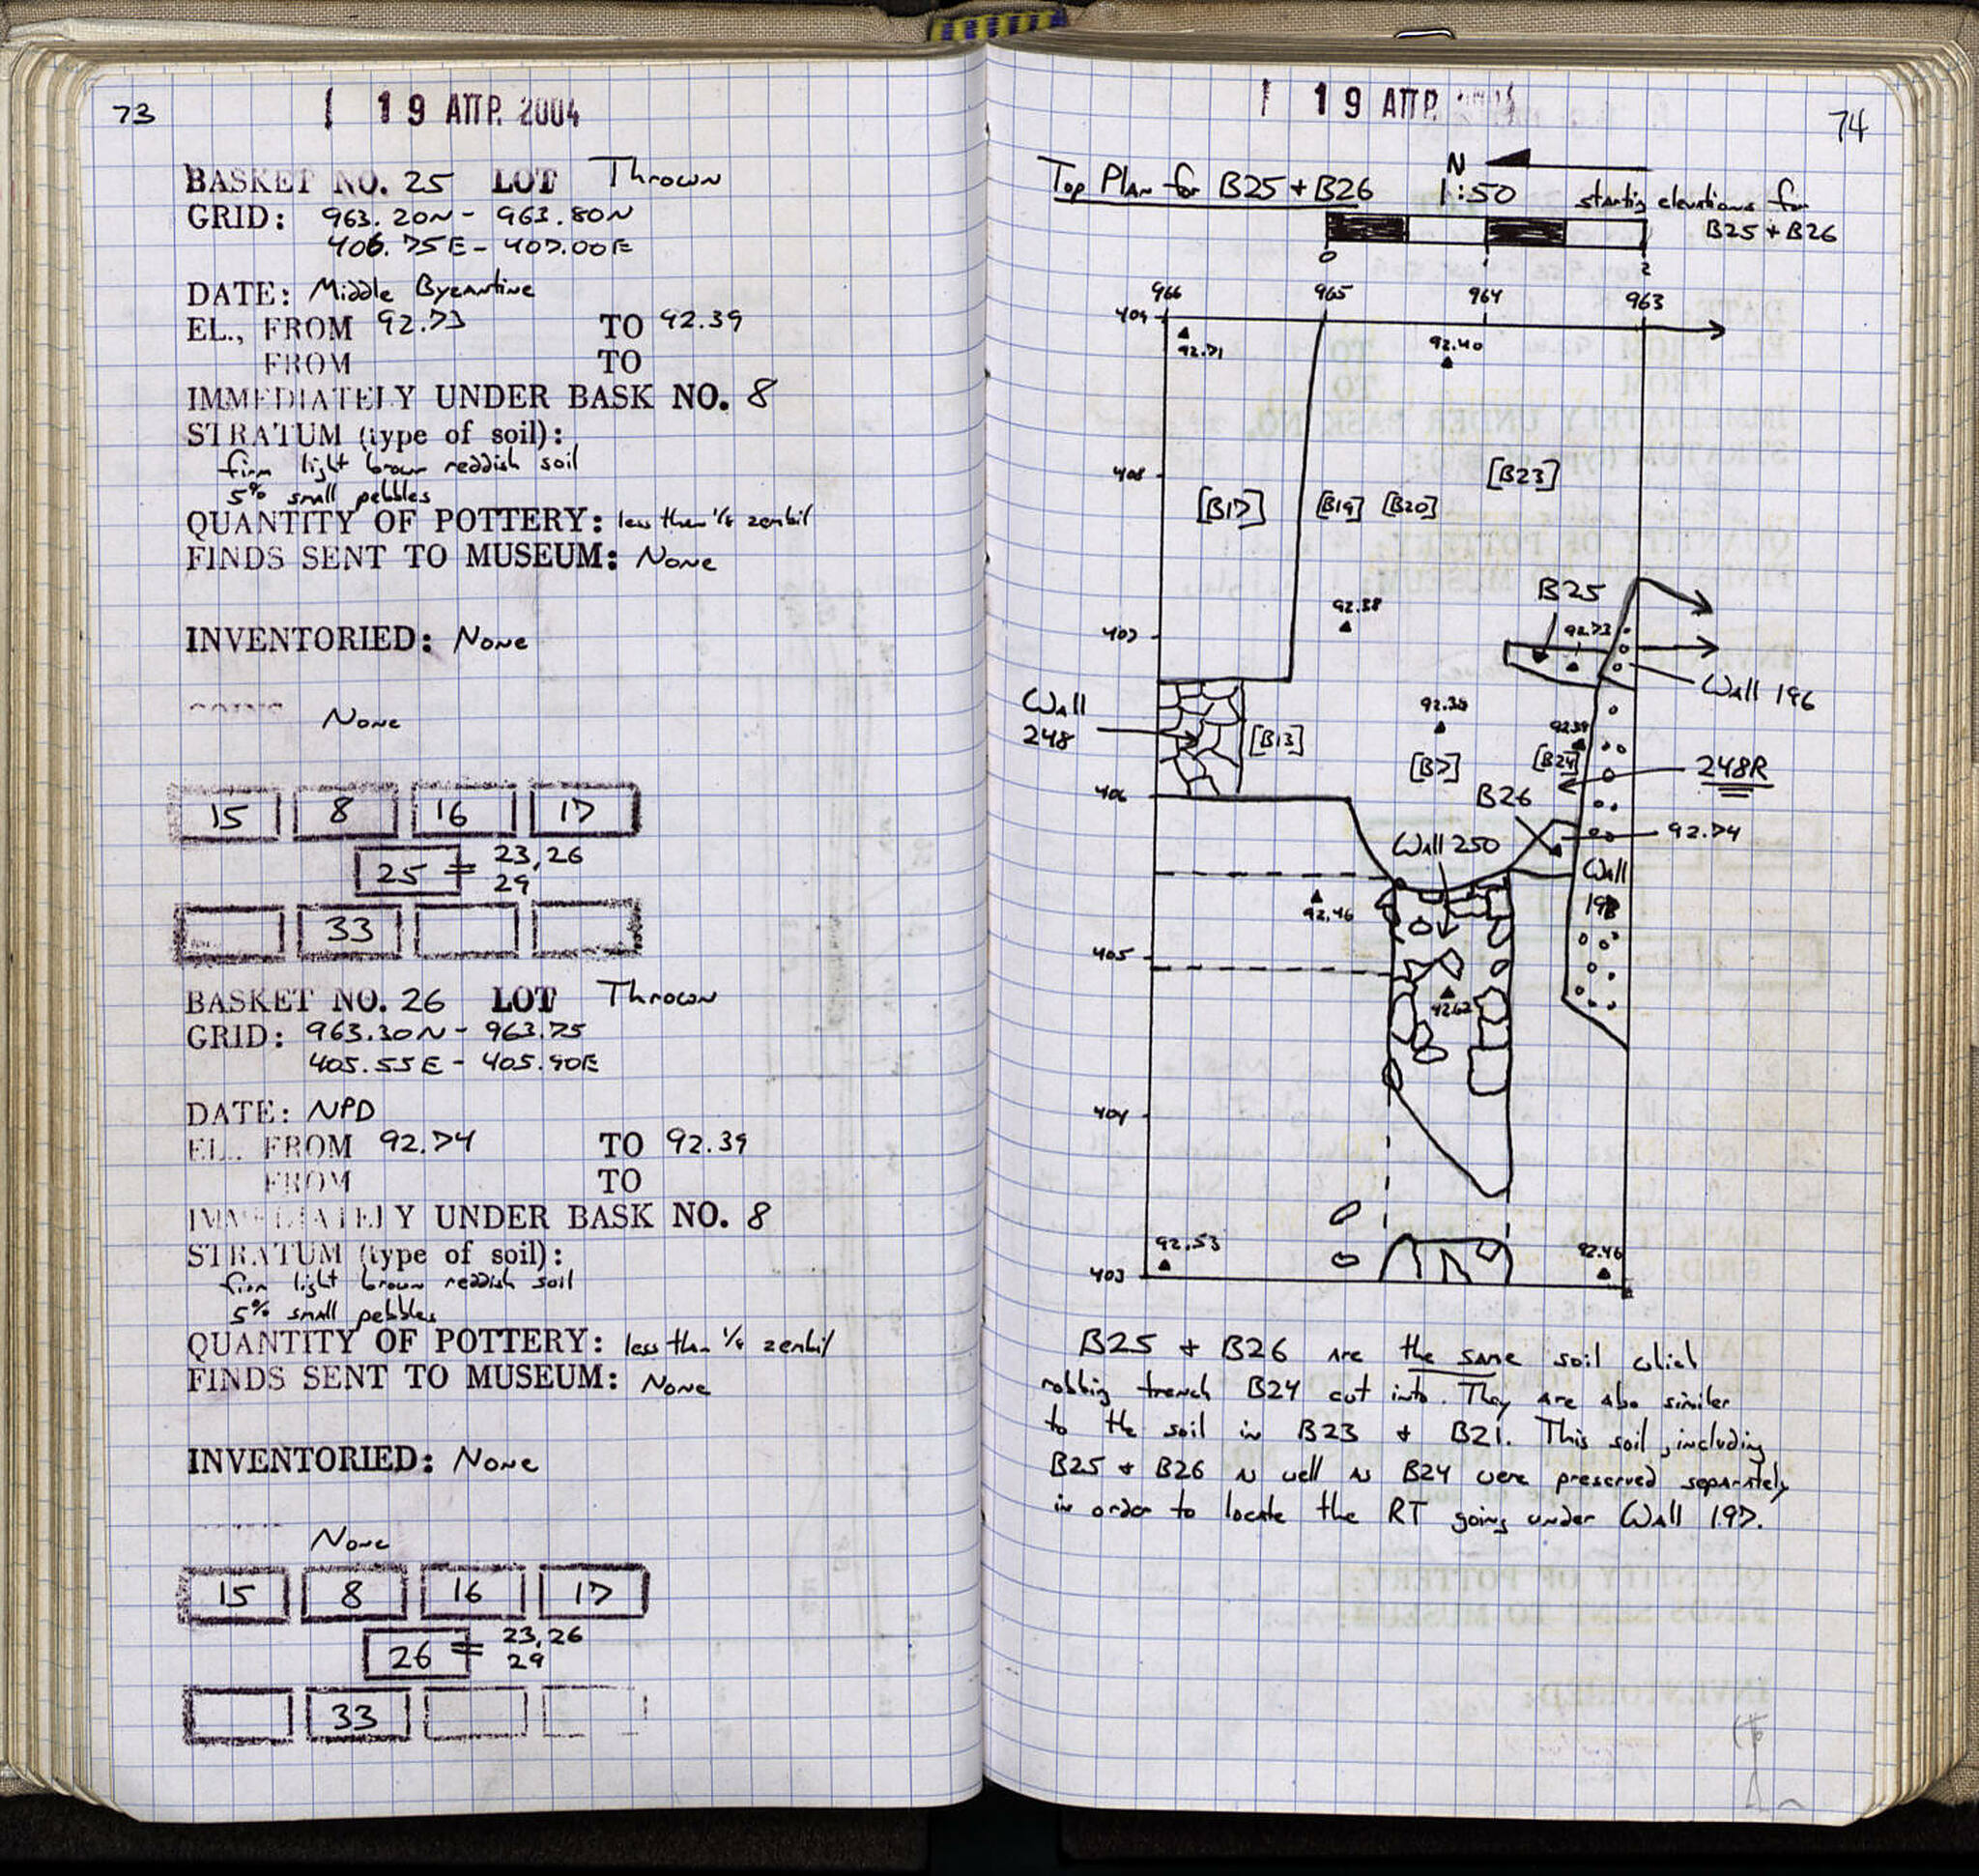 73
19 ΑΠΡ. 2004
BASKET NO. 25 LOT Thrown
GRID: 963.20N - 963.80N
406.75E - 407.00E
DATE: Middle Byzantine
EL., FROM 92.73 TO 92.39
FROM TO
IMMEDIATELY UNDER BASK NO. 8
STRATUM (type of soil):
firm light brown reddish soil
5% small pebbles
QUANTITY OF POTTERY: less than 1/8 zembil
FINDS SENT TO MUSEUM: None
INVENTORIED: None
COINS None
15 8 16 17
25 = 23, 26
29
33
BASKET NO. 26 LOT Thrown
GRID: 963.30N - 963.75
405.55E - 405.90E
DATE: NPD
EL., FROM 92.74 TO 92.39
FROM TO
IMMEDIATELY UNDER BASK NO. 8
STRATUM (type of soil):
firm light brown reddish soil
5% small pebbles
QUANTITY OF POTTERY: less than 1/8 zembil
FINDS SENT TO MUSEUM: None
INVENTORIED: None
None
15 8 16 17
26 = 23, 26
29
33
19 ΑΠΡ.
74
Top Plan for B25 + B26
N
1:50
starting elevations for
B25 + B26
0 1 2
966 965 964 963
409
92.71
92.40
408
[B17] [B19] [B20] [B23]
B25
92.38
407
92.73
Wall 196
Wall
248
[B13]
92.38
[B7]
92.39
[B24]
248R
406
B26
Wall 250
92.74
Wall
197
92.46
405
92.62
404
92.53
92.46
403
B25 + B26 are the same soil which
robbing trench B24 cut into. They are also similar
to the soil in B23 + B21. This soil, including
B25 + B26 as well as B24 were preserved separately
in order to locate the RT going under Wall 197.